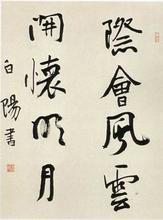 際會風雲
開懷明月
白陽書